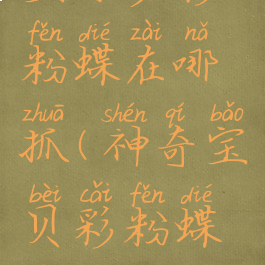 fěn dié zài nǎ
粉蝶在哪
zhuā shén qí bǎo
抓(神奇宝
bèi cǎi fěn dié
贝彩粉蝶